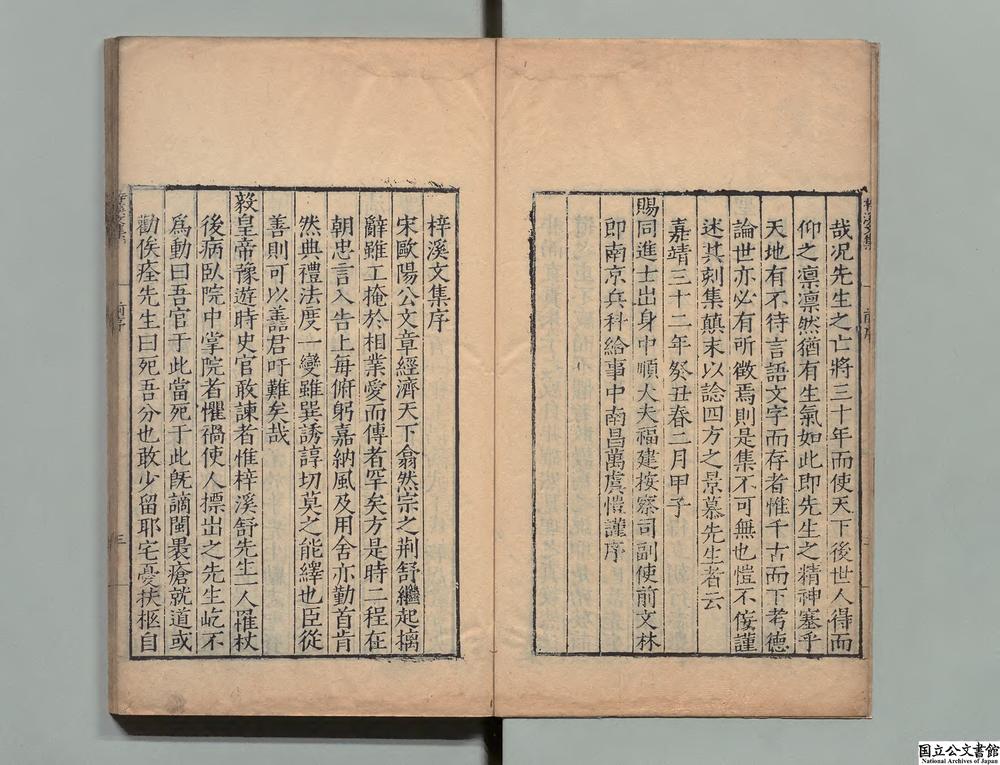 哉况先生之亡將三十年而使天下後世人得而
仰之凛凛然猶有生氣如此即先生之精神塞乎
天地有不待言語文字而存者惟千古而下考德
論世亦必有所徵焉則是集不可無也愷不佞謹
述其刻集顛末以諗四方之景慕先生者云
嘉靖三十二年癸丑春二月甲子
賜同進士出身中順大夫福建按察司副使前文林
郎南京兵科給事中南昌萬虞愷謹序
梓溪文集序
宋歐陽公文章經濟天下翕然宗之荆舒繼起摛
辭雖工掩於相業愛而傳者罕矣方是時二程在
朝忠言入告上每俯躬嘉納風及用舍亦勤首肯
然典禮法度一變雖巽誘諄切莫之能繹也臣從
善則可以善君吁難矣哉
毅皇帝豫遊時史官敢諫者惟梓溪舒先生一人罹杖
後病臥院中掌院者懼禍使人摽出之先生屹不
爲動曰吾官于此當死于此既謫閩褁瘡就道或
勸俟痊先生曰死吾分也敢少留耶宅憂扶柩自
梓溪文集
前序
三
国立公文書館
National Archives of Japan